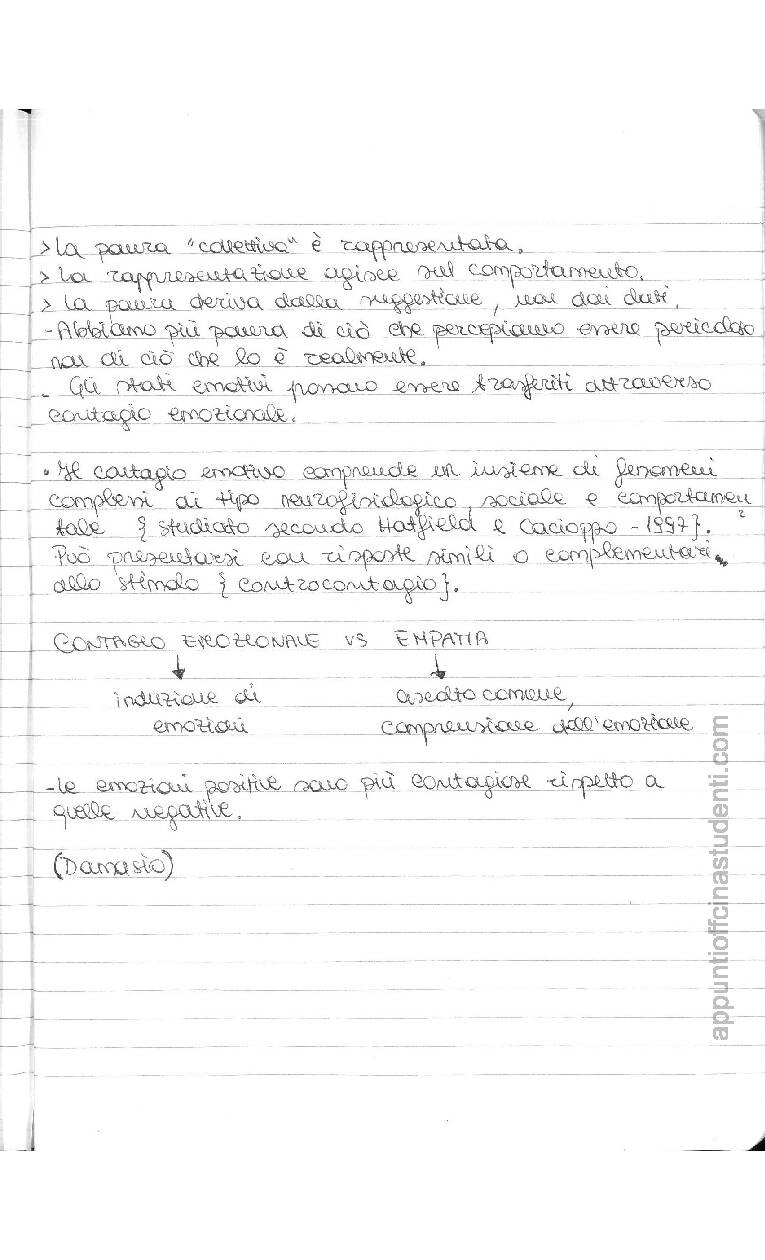 > La paura "collettiva" è rappresentata.
> La rappresentazione agisce sul comportamento.
> La paura deriva dalla suggestione, non dai dati.
- Abbiamo più paura di ciò che percepiamo essere pericoloso
non di ciò che lo è realmente.
- Gli stati emotivi possono essere trasferiti attraverso
contagio emozionale.
• Il contagio emotivo comprende un insieme di fenomeni
complessi di tipo neurofisiologico, sociale e comportamen
tale { studiato secondo Hatfield e Cacioppo - 1997}.
Può presentarsi con risposte simili o complementari
allo stimolo { controcontagio}.
CONTAGIO EMOZIONALE VS EMPATIA
↓ ↓
induzione di ascolto comune,
emozioni comprensione dell'emozione
- Le emozioni positive sono più contagiose rispetto a
quelle negative.
(Damasio)
appuntioffcinastudenti.com